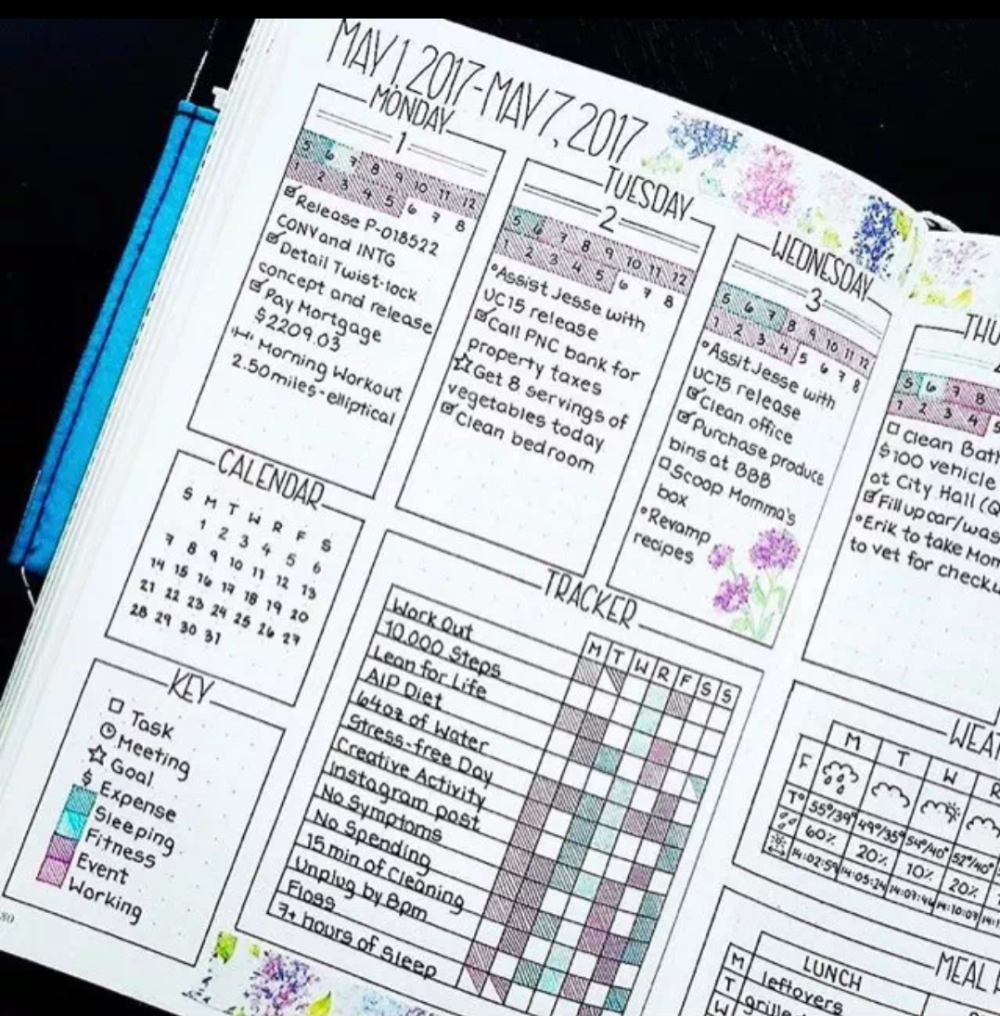 MAY 1, 2017-MAY 7, 2017
MONDAY
1
5 6 7 8 9 10 11 12
1 2 3 4 5 6 7 8
Release P-018522
CONV and INTG
Detail Twist-lock
concept and release
Pay Mortgage
$2209.03
Morning Workout
2.50 miles-elliptical
TUESDAY
2
5 6 7 8 9 10 11 12
1 2 3 4 5 6 7 8
•Assist Jesse with
UC15 release
Call PNC bank for
property taxes
Get 8 servings of
vegetables today
Clean bedroom
WEDNESDAY
3
5 6 7 8 9 10 11 12
1 2 3 4 5 6 7 8
•Assit Jesse with
UC15 release
Clean office
Purchase produce
bins at BBB
Scoop Momma's
box
•Revamp
recipes
THU
5 6 7 8
1 2 3 4 5
Clean Bath
$100 vehicle
at City Hall (Q
Fill up car/was
•Erik to take Mom
to vet for checku
CALENDAR
S M T W R F S
1 2 3 4 5 6
7 8 9 10 11 12 13
14 15 16 17 18 19 20
21 22 23 24 25 26 27
28 29 30 31
KEY
Task
Meeting
Goal
$ Expense
Sleeping
Fitness
Event
Working
80
TRACKER
M T W R F S S
Work Out
10,000 Steps
Lean for Life
AIP Diet
64oz of Water
Stress-free Day
Creative Activity
Instagram post
No Symptoms
No Spending
15 min of Cleaning
Unplug by 8pm
Floss
7+ hours of Sleep
WEAT
M T W R
F
T° 55°/39° 49°/35° 54°/40° 52°/40°
60% 20% 10% 20%
14:02:59 14:05:24 14:07:46 14:10:07
MEAL P
LUNCH
M leftovers
T grille
W